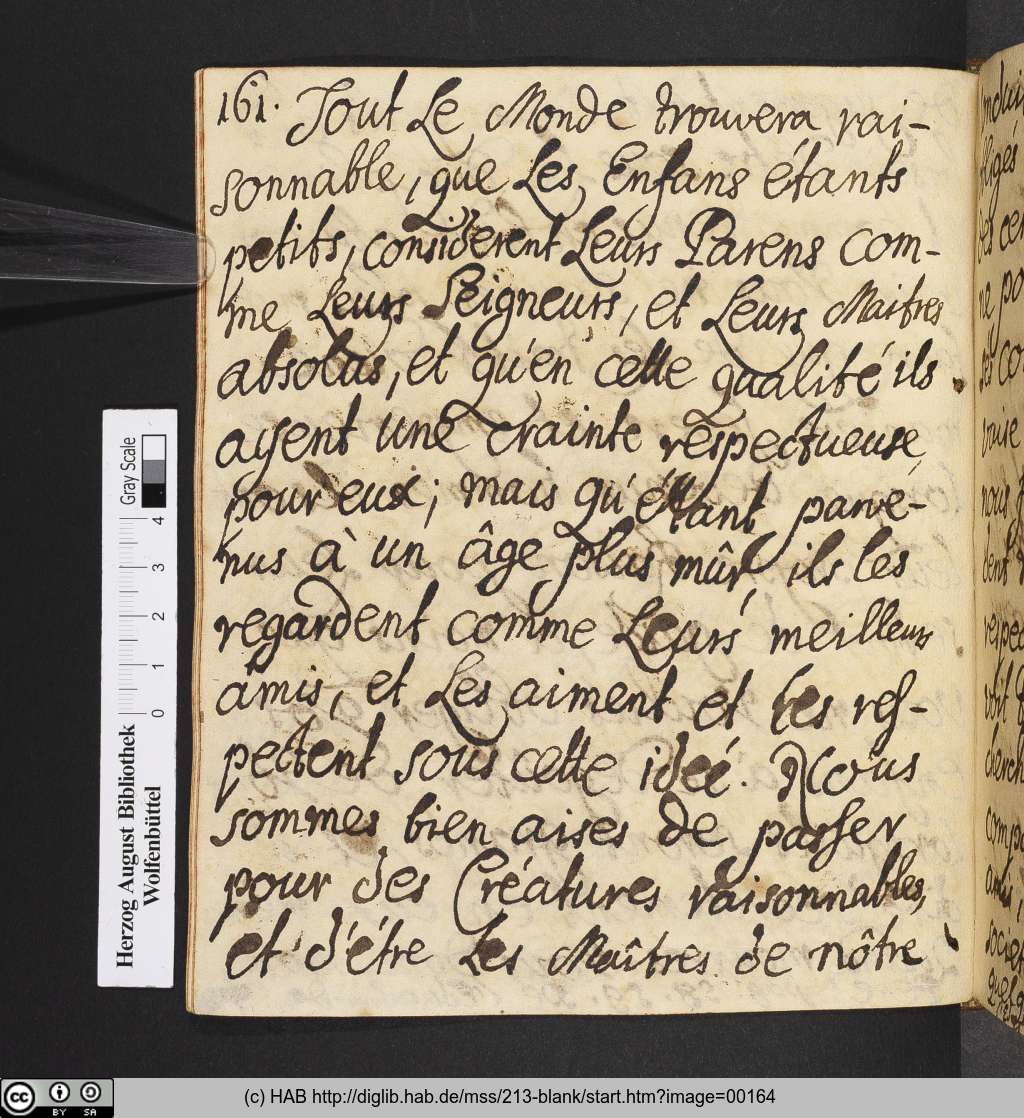 161. Tout Le Monde trouvera rai-
sonnable, que Les Enfans étants
petits, considerent Leurs Parens com-
me Leurs Seigneurs, et Leurs Maitres
absolus, et qu'en cette qualité ils
ayent une crainte respectueuse
pour eux; mais qu'étant parve-
nus à un âge plus mûr ils les
regardent comme Leurs meilleurs
amis, et Les aiment et les res-
pectent sous cette ideé. Nous
sommes bien aises de passer
pour des Créatures raisonnables,
et d'étre Les Maîtres de nôtre
Gray Scale
4
3
2
1
0
Herzog August Bibliothek
Wolfenbüttel
cc BY SA
(c) HAB http://diglib.hab.de/mss/213-blank/start.htm?image=00164